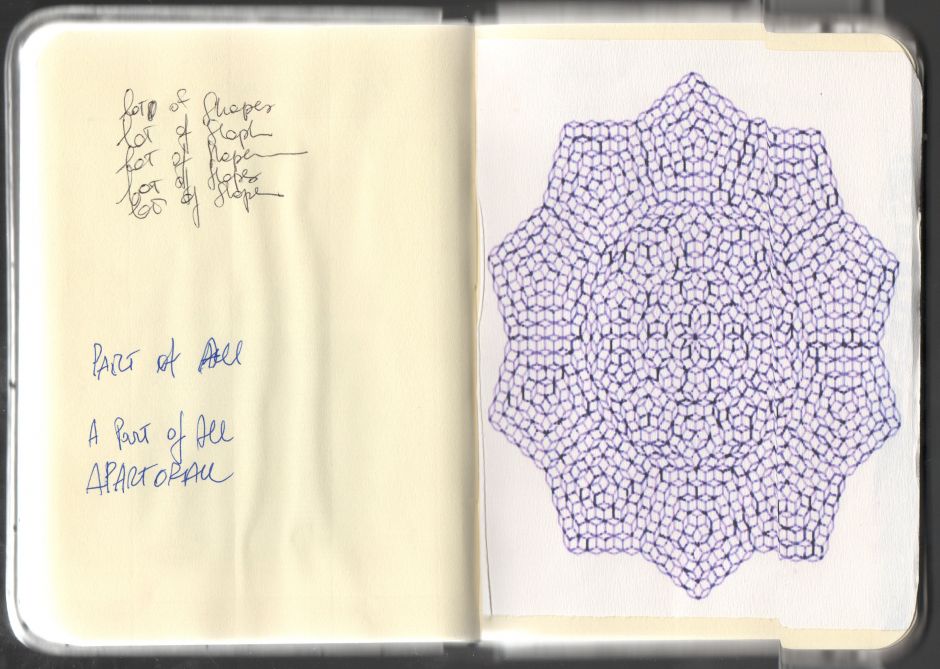 lots of shapes
lot of shapes
lot of shapes
lot of shapes
lot of shapes
PART of All
A Part of All
APARTOFALL